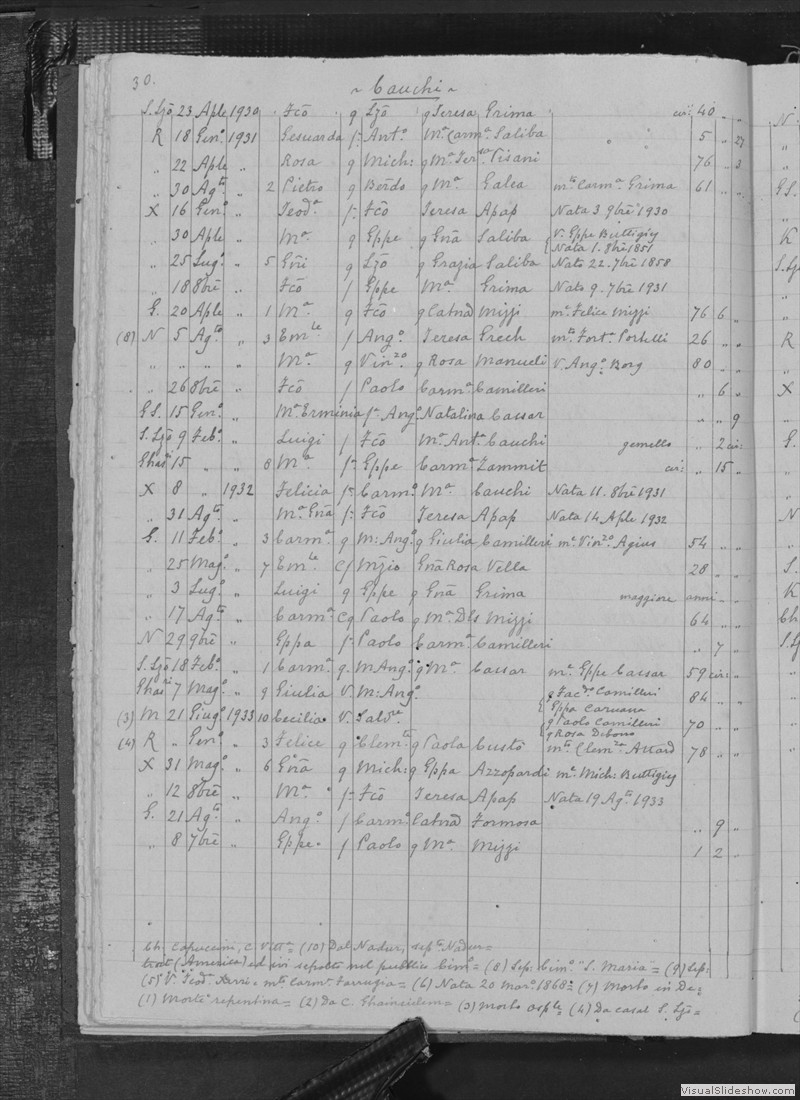 30.
~ Cauchi ~
S. Ljō 23 Aple 1930 Fcō g Ljō g Teresa Grima cir: 40 " "
R 18 Genº 1931 Gesuarda f: Antº Mª Carmª Saliba " 5 " 27
" 22 Aple " Rosa g Mich: g Mª Terª Pisani 76 " 3
" 30 Agto " 2 Pietro g Berdo g Mª Galea mto Carmª Grima 61 " "
X 16 Genº " Teodª f: Fcō Teresa Apap Nata 3 9bre 1930
" 30 Aple " Mª g Eppe g Gnā Saliba V. Eppe Buttigieg
Nata 1. 8bre 1851
" 25 Lugº " 5 Gñi g Ljō g Grazia Saliba Nato 22. 7bre 1858
" 18 8bre " Fcō f Eppe Mª Grima Nato 9. 7bre 1931
G. 20 Aple " 1 Mª g Fcō g Catnā Mizzi mº Felice Mizzi 76 6 "
(8) N 5 Agto " 3 Emle f Angº Teresa Grech mto Fortª Portelli 26 " "
" " " " Mª g Vinzo g Rosa Manueli V. Angº Borg 80 " "
" 26 8bre " Fcō f Paolo Carmª Camilleri " 6 "
GS. 15 Genº " Mª Erminia f: Angº Natalina Cassar " " 9
S. Ljō 9 Febº " Luigi f Fcō Mª Antª Cauchi gemello " 2 cir:
Għasi 15 " " 8 Mª f: Eppe Carmª Zammit cir: " 15 "
X 8 " 1932 Felicia f: Carmº Mª Cauchi Nata 11. 8bre 1931
" 31 Agto " Mª Gnā f: Fcō Teresa Apap Nata 14 Aple 1932
G. 11 Febº " 3 Carmª g M: Angº g Giulia Camilleri mº Vinzo Agius 54 " "
" 25 Magº " 7 Emle Cf Mzio Gnā Rosa Vella 28 " "
" 3 Lugº " Luigi g Eppe g Gnā Grima maggiore anni " "
" 17 Agto " Carmª Cg Paolo g Mª Dls Mizzi 64 " "
N 29 9bre " Eppa f: Paolo Carmª Camilleri " 7 "
S. Ljō 18 Febº " 1 Carmª g M Angº g Mª Cassar mº Eppe Cassar 59 cir: "
Għasi 7 Magº " 9 Giulia V. M: Angº g Camilleri 84 " "
Eppa Caruana
(3) M 21 Giugº 1933 10 Cecilia V. Salvre g Paolo Camilleri 70 " "
g Rosa Debono
(4) R " Genº " 3 Felice g Clemte g Paola Custo mto Clemza Attard 78 " "
X 31 Magº " 6 Gnā g Mich: g Eppa Azzopardi mº Mich: Buttigieg
" 12 8bre " Mª f: Fcō Teresa Apap Nata 19 Agto 1933
G. 21 Agto " Angº f Carmº Catnā Formosa " 9 "
" 8 7bre " Eppe f Paolo g Mª Mizzi 1 2 "
Ch. Capuccini, C. Vittª = (10) Dal Nadur, sepª Nadur =
(America) ed ivi sepolto nel pubblico Cimº = (8) Sep: Cimº "S. Maria" = (9) Sep:
(5) V. Teodª = mto Carmª Farrugia = (6) Nata 20 Marº 1868 = (7) Morto in De=
(1) Morte repentina = (2) Da C. Ghainsielem = (3) Morto Osple = (4) Da casal S. Ljō =
N
GS.
K
S. Ljō
R
X
G.
N
S.
K
Ch
S. Ljō
VisualSlideshow.com